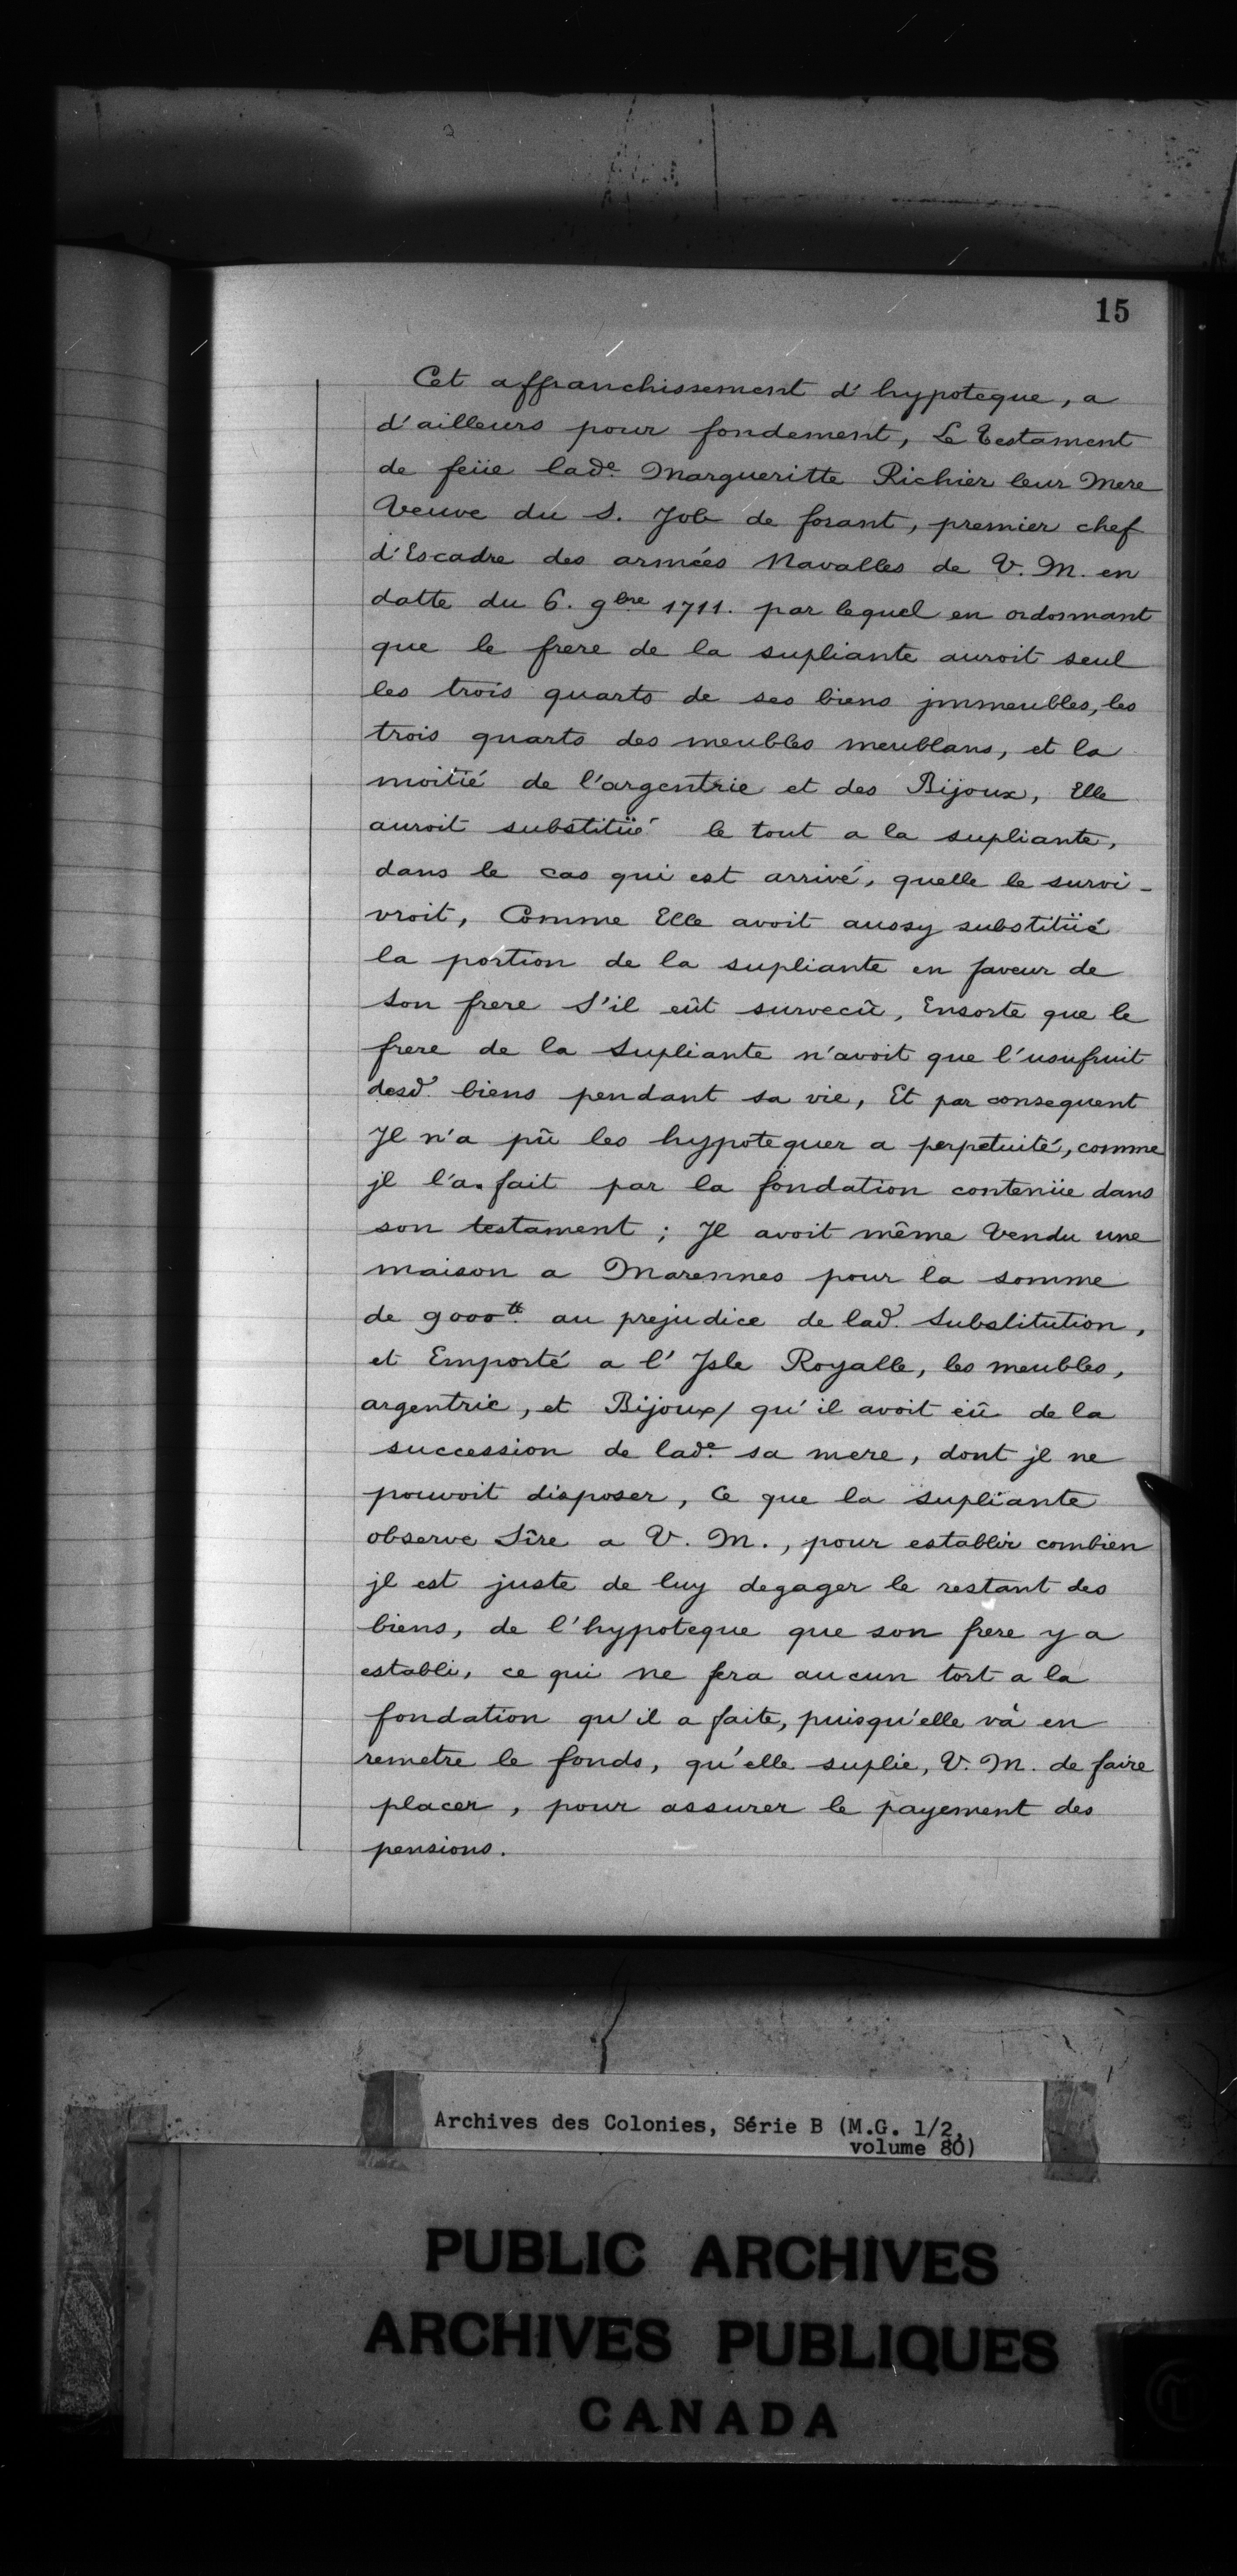 15
Cet affranchissement d'hypoteque, a
d'ailleurs pour fondement, Le Testament
de feüe lad.e Margueritte Richier leur Mere
Veuve du S. Job de forant, premier chef
d'Escadre des armées Navalles de V. M. en
datte du 6. 9bre 1711. par lequel en ordonnant
que le frere de la supliante auroit seul
les trois quarts de ses biens jmmeubles, les
trois quarts des meubles meublans, et la
moitié de l'argentrie et des Bijoux, Elle
auroit substitüé le tout a la supliante,
dans le cas qui est arrivé, quelle le survi-
vroit, Comme Elle avoit aussy substitüé
la portion de la supliante en faveur de
son frere S'il eût survecû, Ensorte que le
frere de la Supliante n'avoit que l'usufruit
desd. biens pendant sa vie, Et par consequent
Jl n'a pû les hypotequer a perpetuité, comme
jl l'a fait par la fondation contenüe dans
son testament ; Jl avoit même Vendu une
maison a Marennes pour la somme
de 9000tt au prejudice de lad. Substitution,
et Emporté a l'Jsle Royalle, les meubles,
argentrie, et Bijoux/ qu'il avoit eü de la
succession de lad.e sa mere, dont jl ne
pouvoit disposer, Ce que la supliante
observe Sîre a V. M., pour establir combien
jl est juste de luy degager le restant des
biens, de l'hypoteque que son frere y a
establi, ce qui ne fera aucun tort a la
fondation qu'il a faite, puisqu'elle và en
remetre le fonds, qu'elle suplie, V. M. de faire
placer, pour assurer le payement des
pensions.
Archives des Colonies, Série B (M.G. 1/2,
volume 80)
PUBLIC ARCHIVES
ARCHIVES PUBLIQUES
CANADA